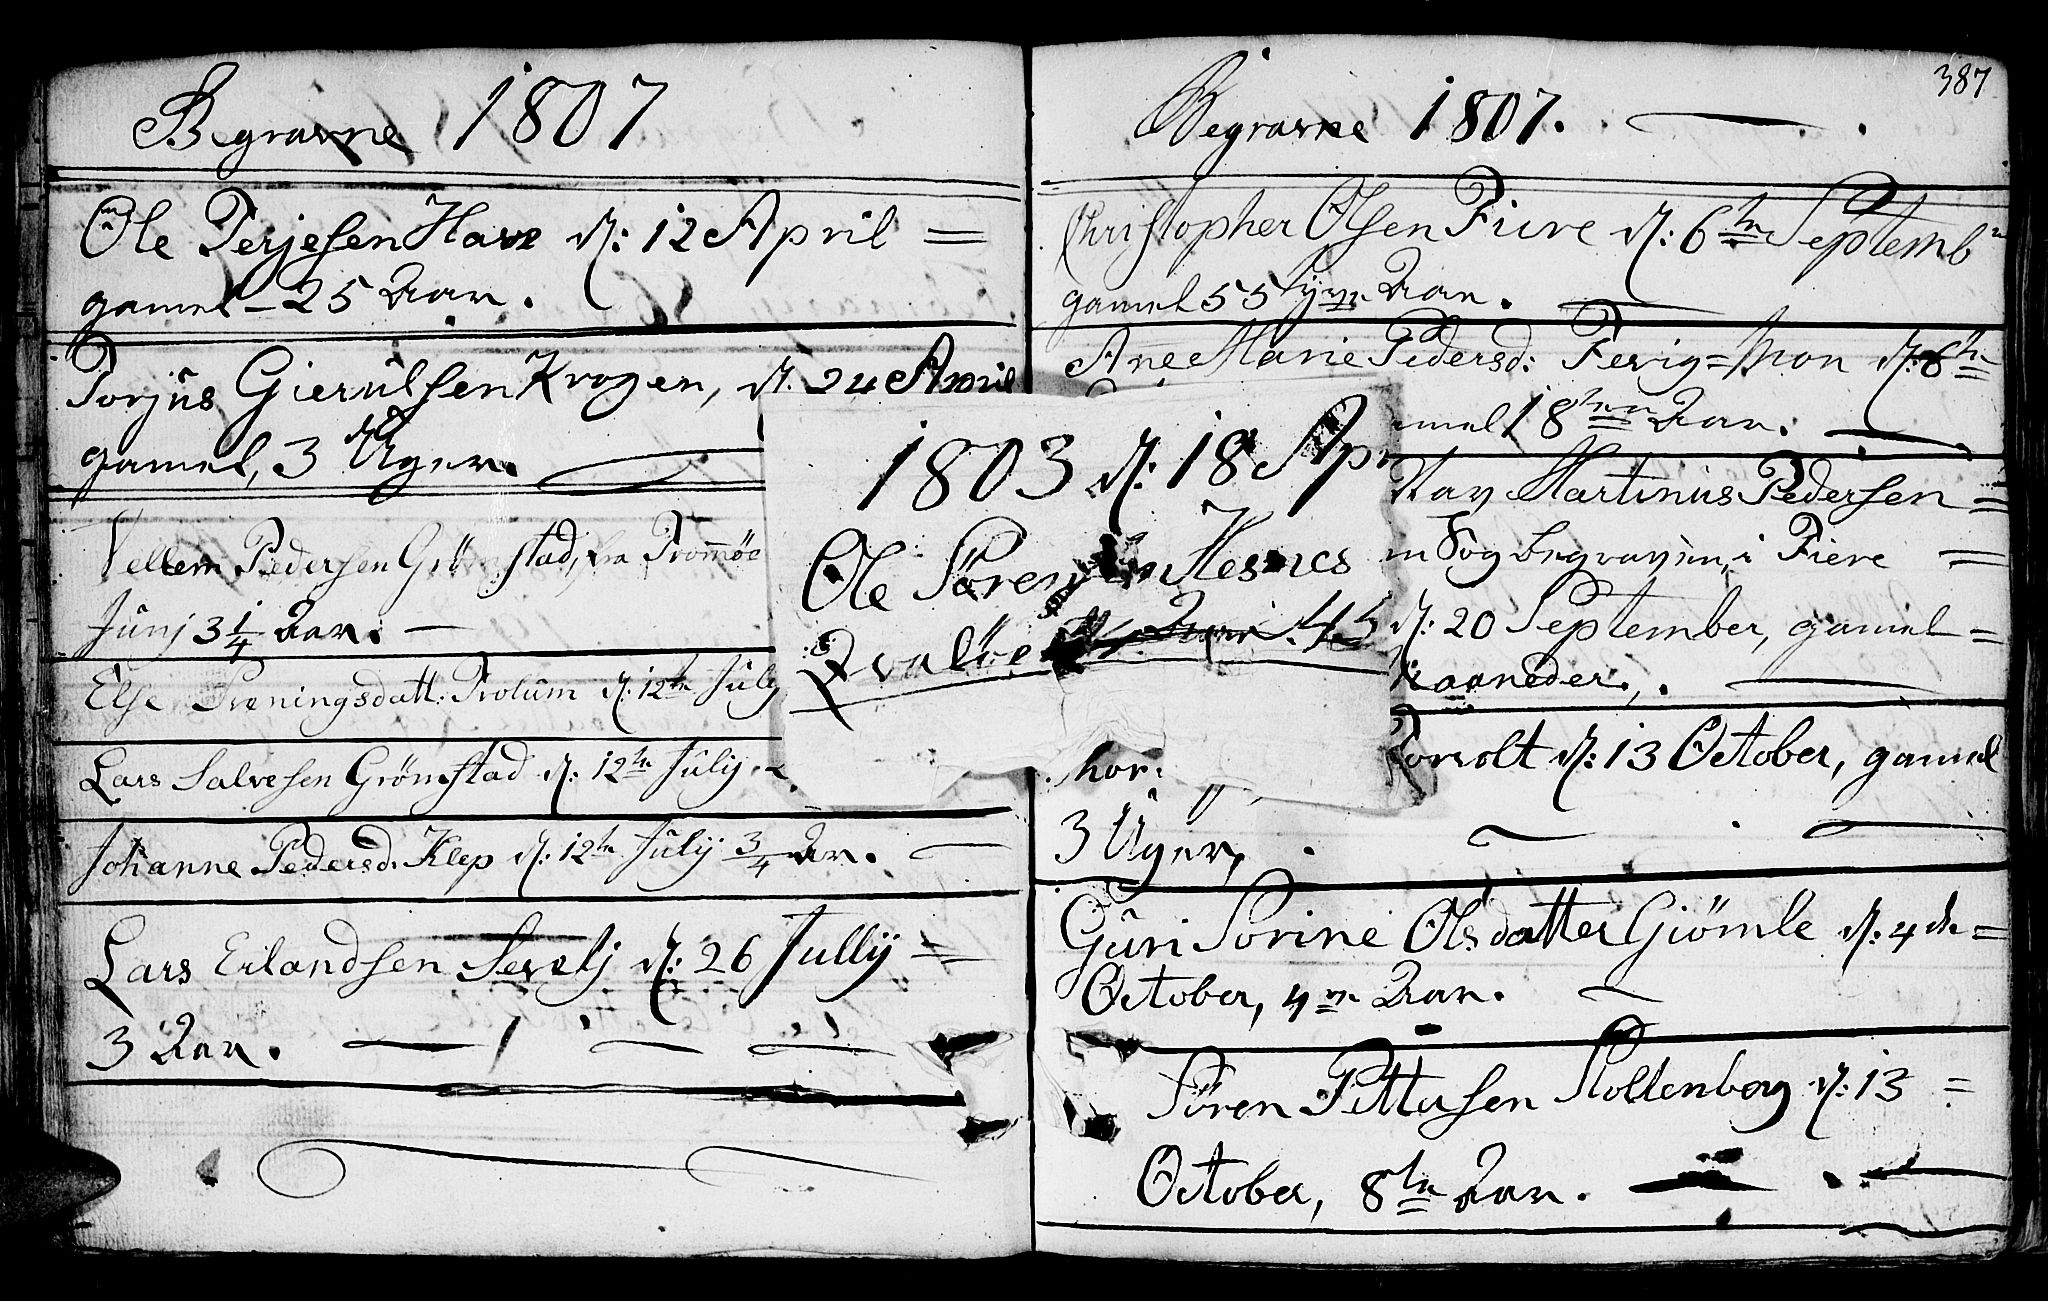 Begravne 1807
Ole Terjesen Have d: 12 April =
gamel 25 Aar.
Torjus Gierulsen Krogen, d. 24 April
gamel, 3 Uger.
Vellem Pedersen Grömstad, fra Tromöe
Junj 3 1/4 Aar. —
Else Trøningsdatt: Trolum d: 12te July
Lars Salvesen Grömstad d: 12te July
Johanne Pedersd. Klep d: 12te July 3/4 Ar. —
Lars Erlandsen Sevelj d: 26 Jullÿ =
3 Aar.
1803 d: 18 Ap
Ole Sören Hesnes
387
Begravne 1807.
Christopher Olsen Fiere d: 6te Septemb
gamel 55 Aar.
Ane Marie Pedersd: Fevig=Mon d: 6te
mel 18ten Aar.
Martinus Pedersen =
Sog begraven, i Fiere =
d: 20 September, gamel =
Maaneder.
Thor Torvolt d: 13 October, gamel
3 Uger,
Guri Sorine Olsdatter Giömle d: 4de =
October, 4re Aar.
Sören Pettersen Stoltenberg d: 13 =
October, 8te Aar.